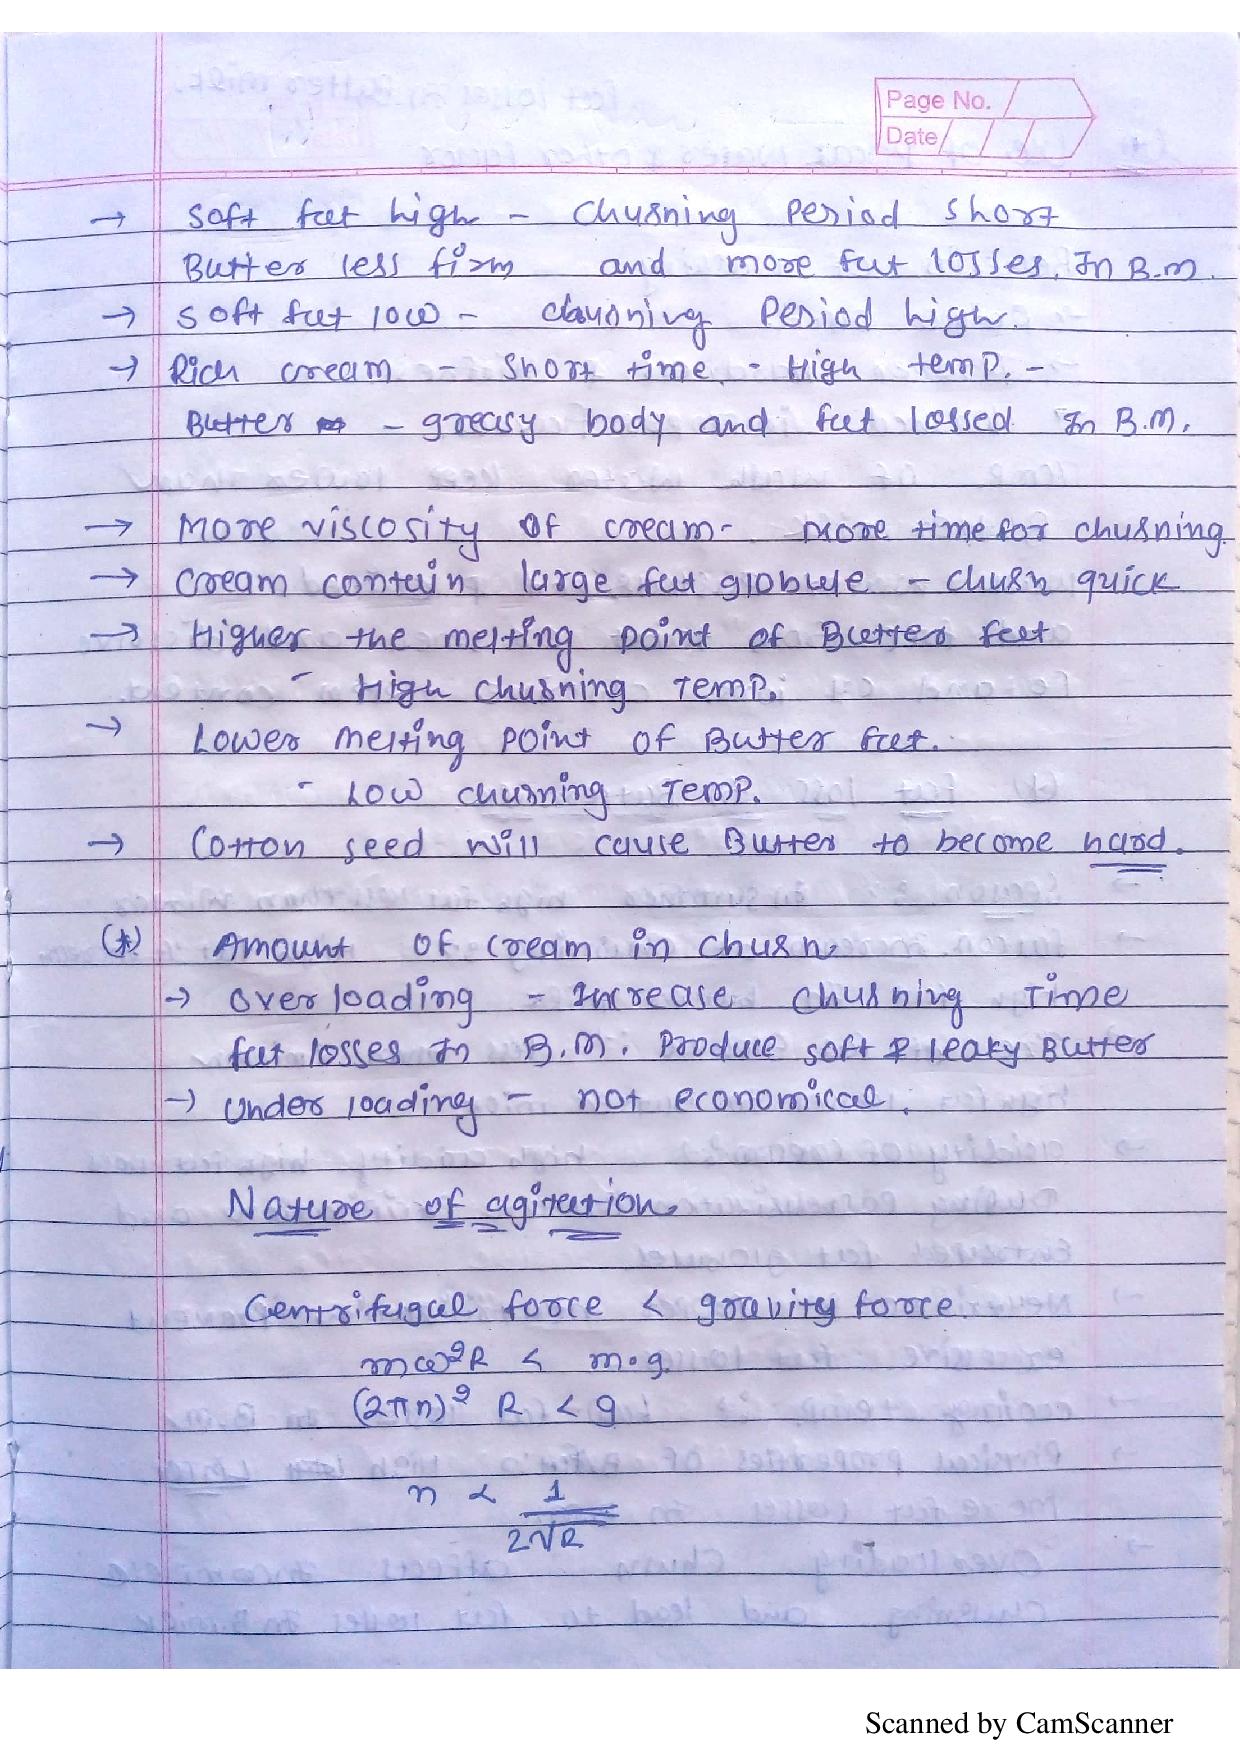 Page No.
Date
→ Soft fat high - Churning Period short
Butter less firm and more fat losses. In B.M.
→ Soft fat low - churning Period high.
→ Rich cream - Short time. - High temp. -
Butter - greasy body and fat lossed In B.M.
→ More viscosity of cream - more time for churning.
→ Cream contain large fat globule - churn quick
→ Higher the melting point of Butter fat
- High churning Temp.
→ Lower melting point of Butter fat.
- Low churning Temp.
→ Cotton seed will cause Butter to become hard.
(*) Amount of cream in churn.
→ over loading - Increase churning Time
fat losses In B.M. Produce soft & leaky Butter
→ Under loading - not economical.
Nature of agitation.
Centrifugal force < gravity force.
mω²R < m·g.
(2πn)² R < g
n < 1
2√R
Scanned by CamScanner